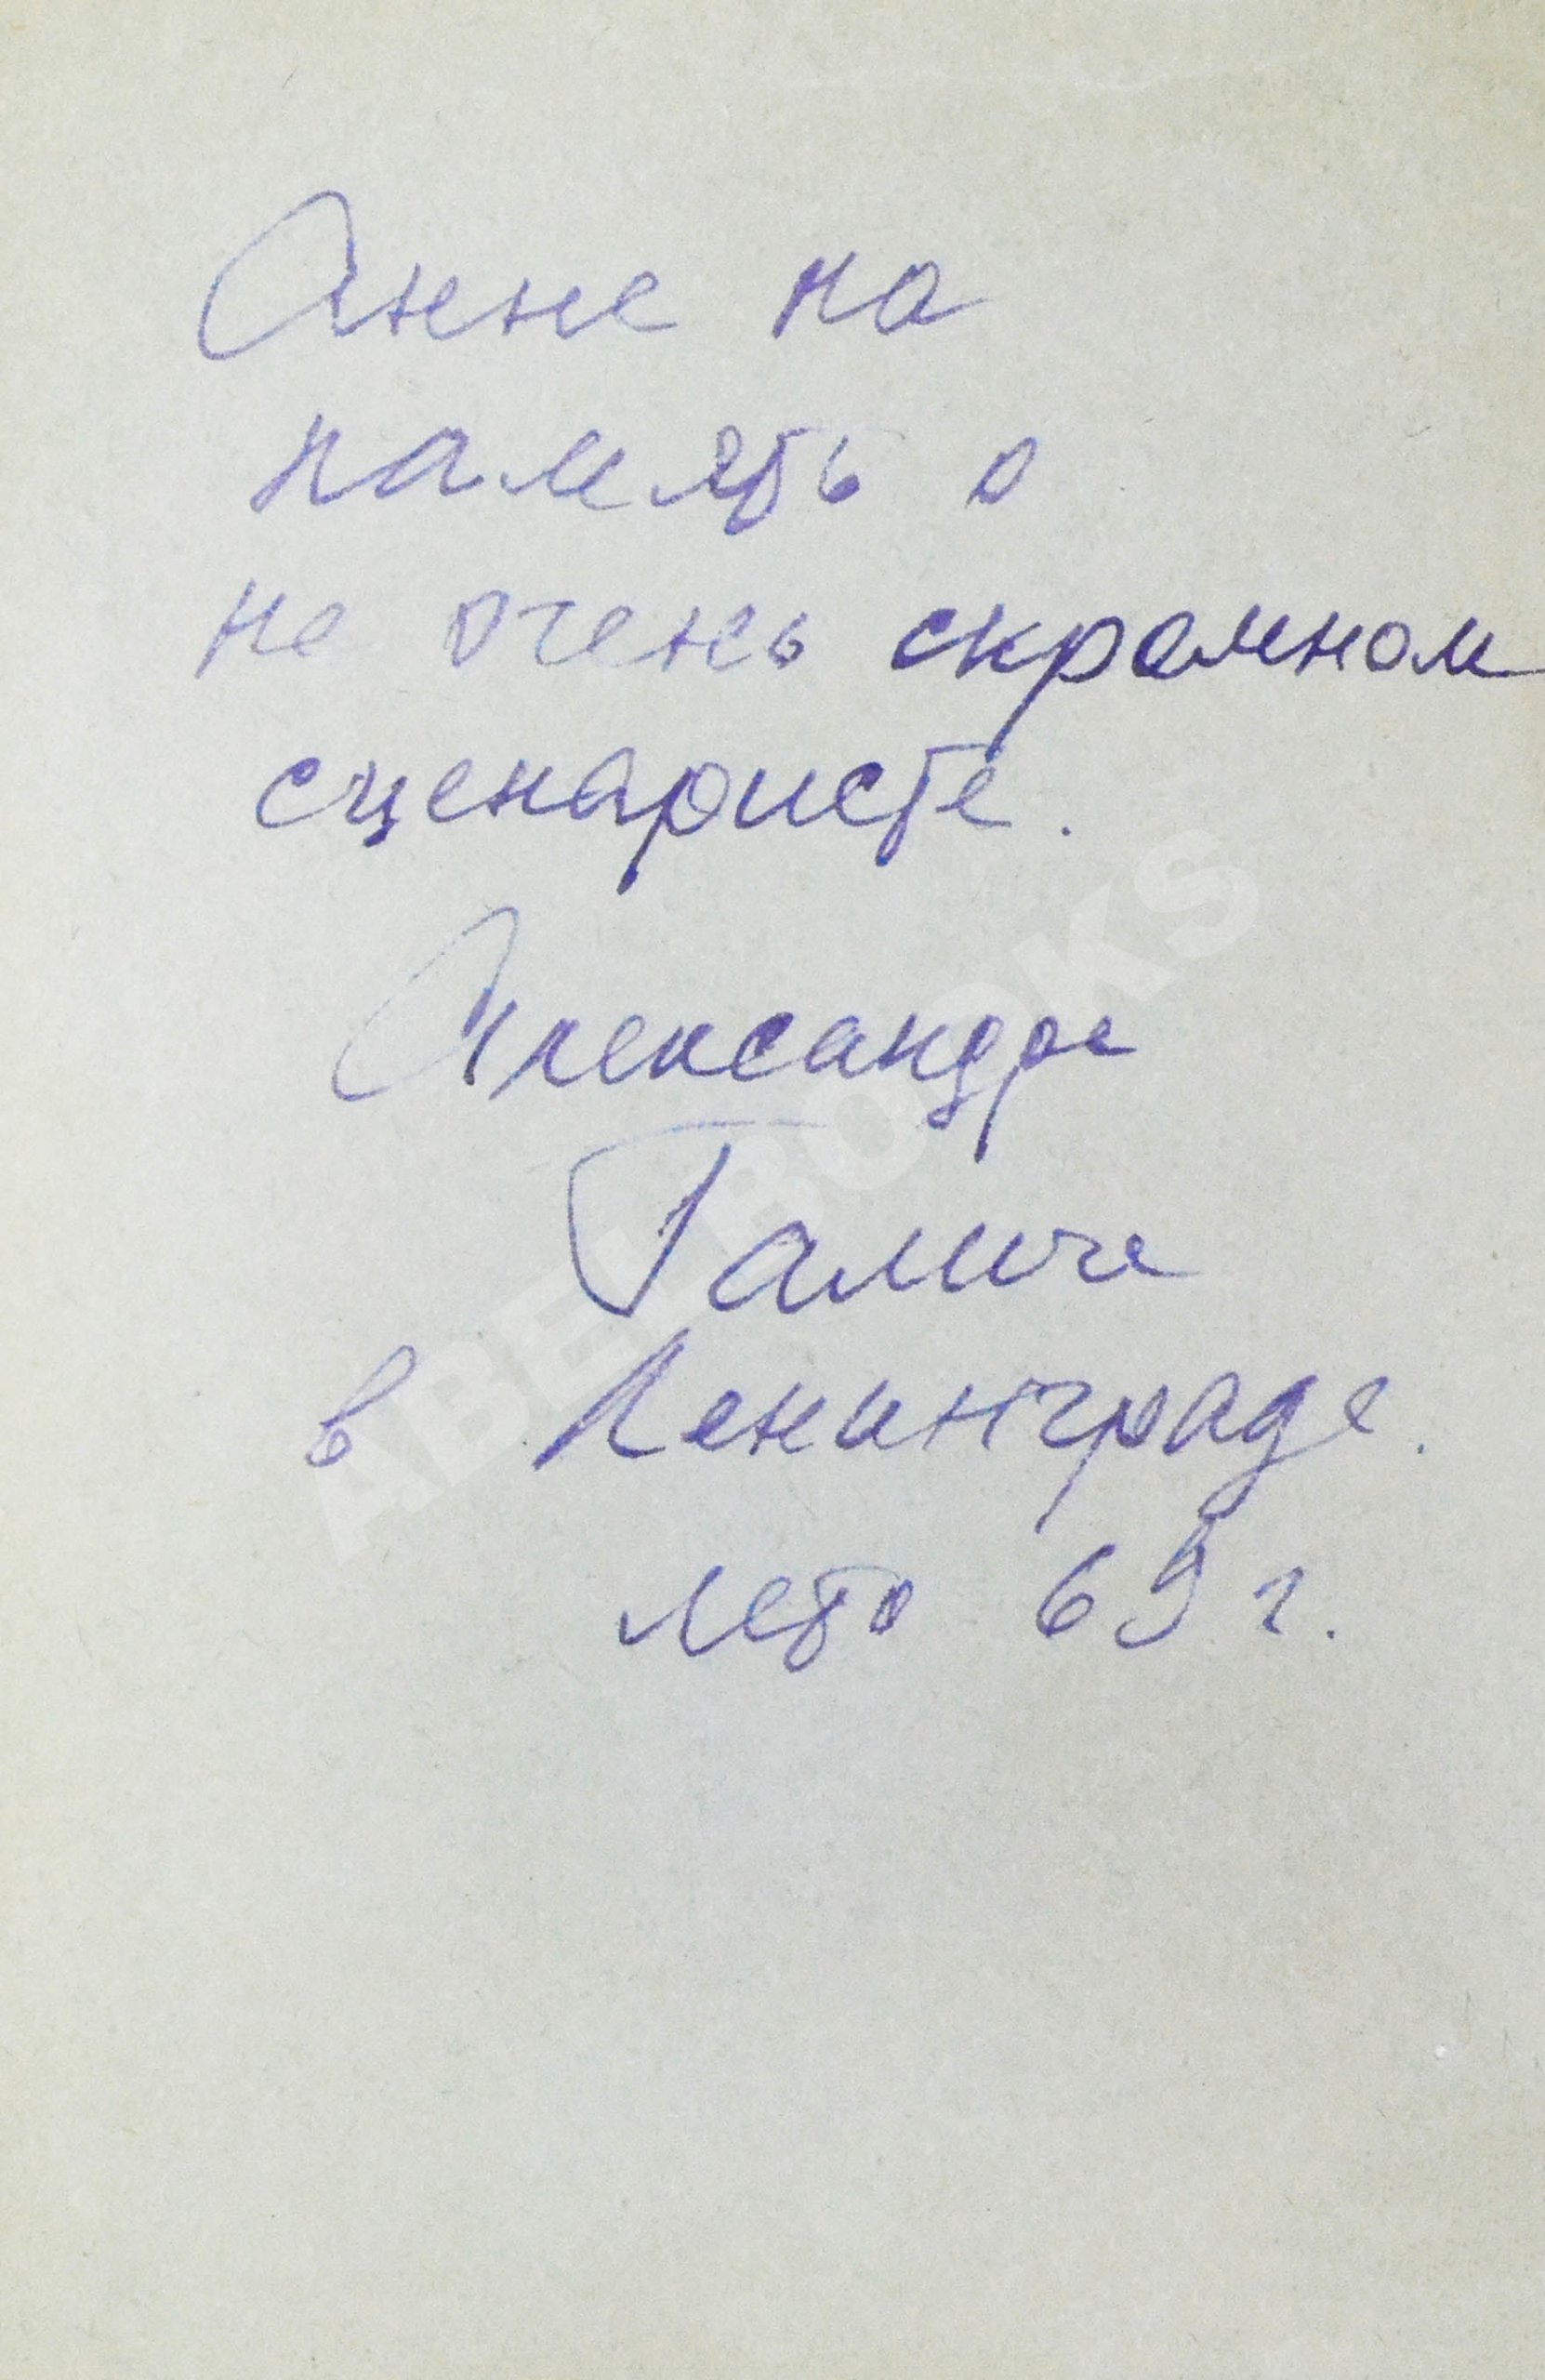 Анне на
память о
не очень скромном
сценаристе.
Александре
Галиче
в Ленинграде.
лето 69 г.
ABEBOOKS